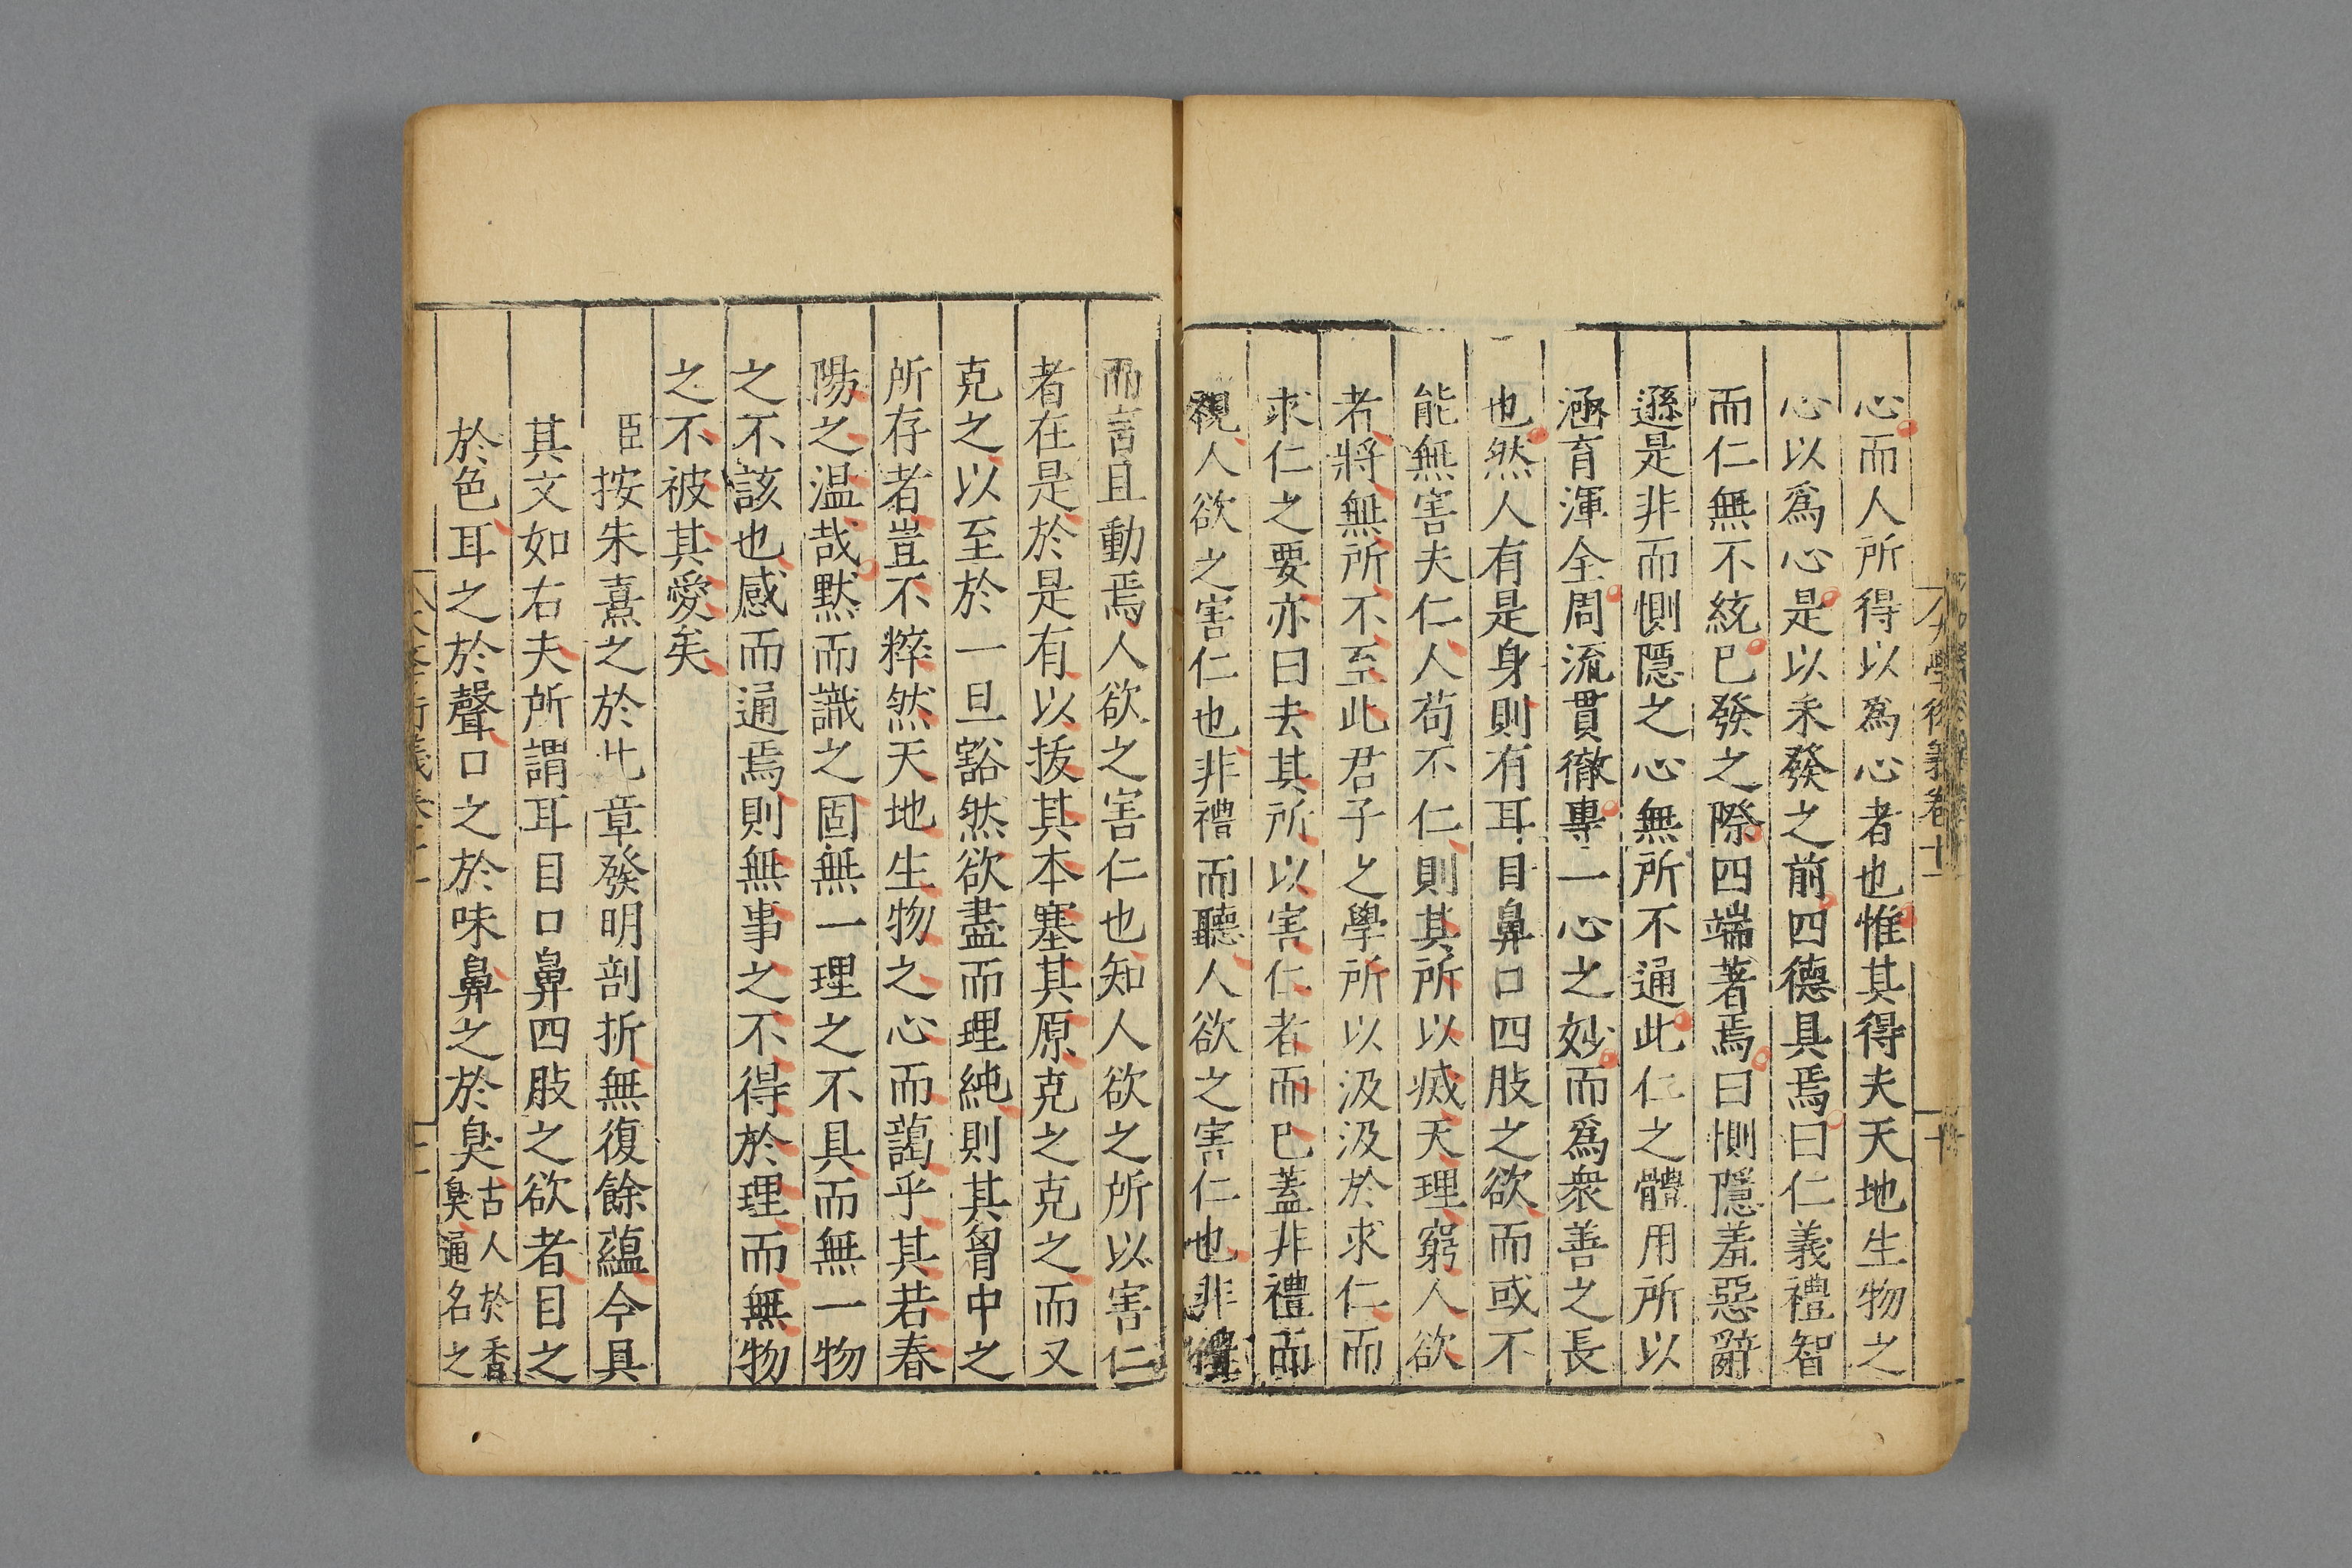 心而人所得以爲心者也惟其得夫天地生物之
心以爲心是以未發之前四德具焉曰仁義禮智
而仁無不統已發之際四端著焉曰惻隱羞惡辭
遜是非而惻隱之心無所不通此仁之體用所以
涵育渾全周流貫徹專一心之妙而爲衆善之長
也然人有是身則有耳目鼻口四肢之欲而或不
能無害夫仁人苟不仁則其所以滅天理窮人欲
者將無所不至此君子之學所以汲汲於求仁而
求仁之要亦曰去其所以害仁者而已蓋非禮而
視人欲之害仁也非禮而聽人欲之害仁也非禮
而言且動焉人欲之害仁也知人欲之所以害仁
者在是於是有以拔其本塞其原克之克之而又
克之以至於一旦豁然欲盡而理純則其胷中之
所存者豈不粹然天地生物之心而藹乎其若春
陽之温哉默而識之固無一理之不具而無一物
之不該也感而通焉則無事之不得於理而無物
之不被其愛矣
臣按朱熹之於此章發明剖折無復餘蘊今具
其文如右夫所謂耳目口鼻四肢之欲者目之
於色耳之於聲口之於味鼻之於臭古人於香
臭通名之
大學衍義卷十一
十